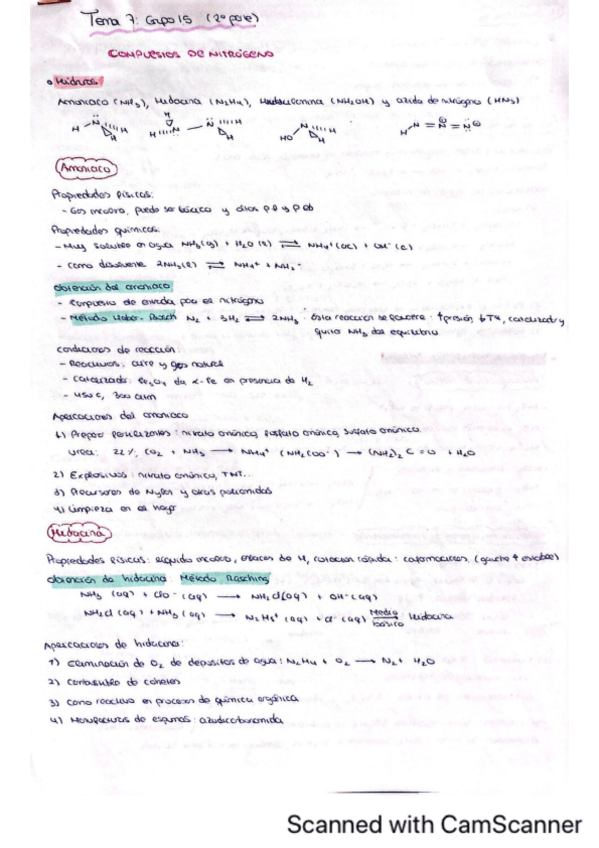 Tema 7: Grupo 15 (2º parte)
COMPUESTOS DE NITRÓGENO
Hidruros
Amoniaco (NH3), Hidracina (N2H4), Hidroxilamina (NH2OH) y azida de nitrógeno (HN3)
Amoniaco
Propiedades físicas:
- Gas incoloro, puede ser básico y
Propiedades químicas:
- Muy soluble en agua NH3(g) + H2O(l) ⇌ NH4+(ac) + OH-
- Como disolvente 2NH3(l) ⇌ NH4+ + NH2-
Obtención del amoniaco
- Compuesto de entrada para el nitrógeno
- Método Haber-Bosch N2 + 3H2 ⇌ 2NH3 : esta reacción se favorece: ↑presión, ↓Tª, catalizador y
quito NH3 del equilibrio
Condiciones de reacción:
- Reactivos: aire y gas natural
- Catalizador: Fe3O4 da α-Fe en presencia de H2
- 450ºC, 300 atm
Aplicaciones del amoniaco
1) Prepar fertilizantes: nitrato amónico, fosfato amónico, sulfato amónico.
urea: CO2 + NH3 → NH4+ (NH2COO-) → (NH2)2 C=O + H2O
2) Explosivos: nitrato amónico, TNT...
3) Precursores de Nylon y otras poliamidas
4) Limpieza en el hogar
Hidracina
Propiedades físicas: líquido incoloro, enlaces de H, rotación rápida: (gauche + estable)
Obtención de hidracina: Método Rasching
NH3 (aq) + ClO- (aq) → NH2Cl(aq) + OH- (aq)
NH2Cl (aq) + NH3 (aq) → N2H5+ (aq) + Cl- (aq) Medio básico → Hidracina
Aplicaciones de hidracina:
1) Eliminación de O2 de depósitos de agua: N2H4 + O2 → N2 + H2O
2) Combustible de cohetes
3) Como reactivo en procesos de química orgánica
4) Manufactura de espumas: azodicarbonamida
Scanned with CamScanner